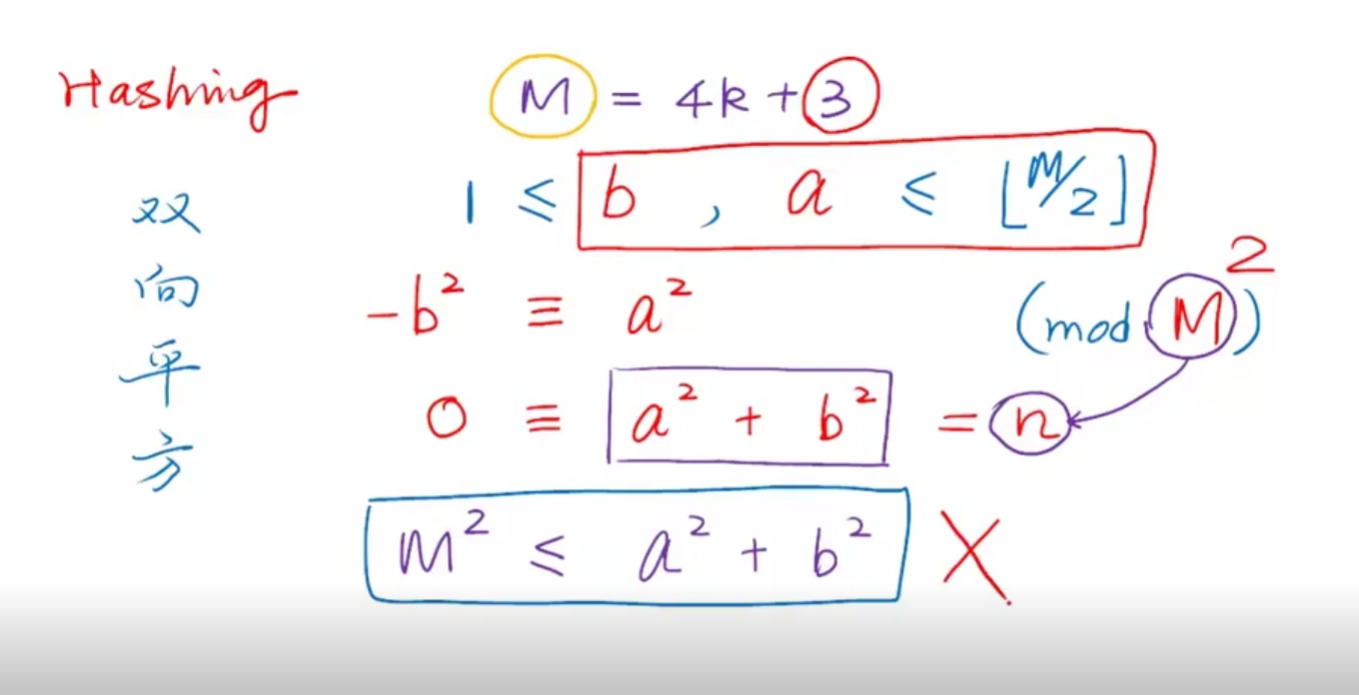 Hashing
M = 4k + 3
1 ≤ b , a ≤ ⌊M/2⌋
双向平方
-b² ≡ a² (mod M²)
0 ≡ a² + b² = n
M² ≤ a² + b² X